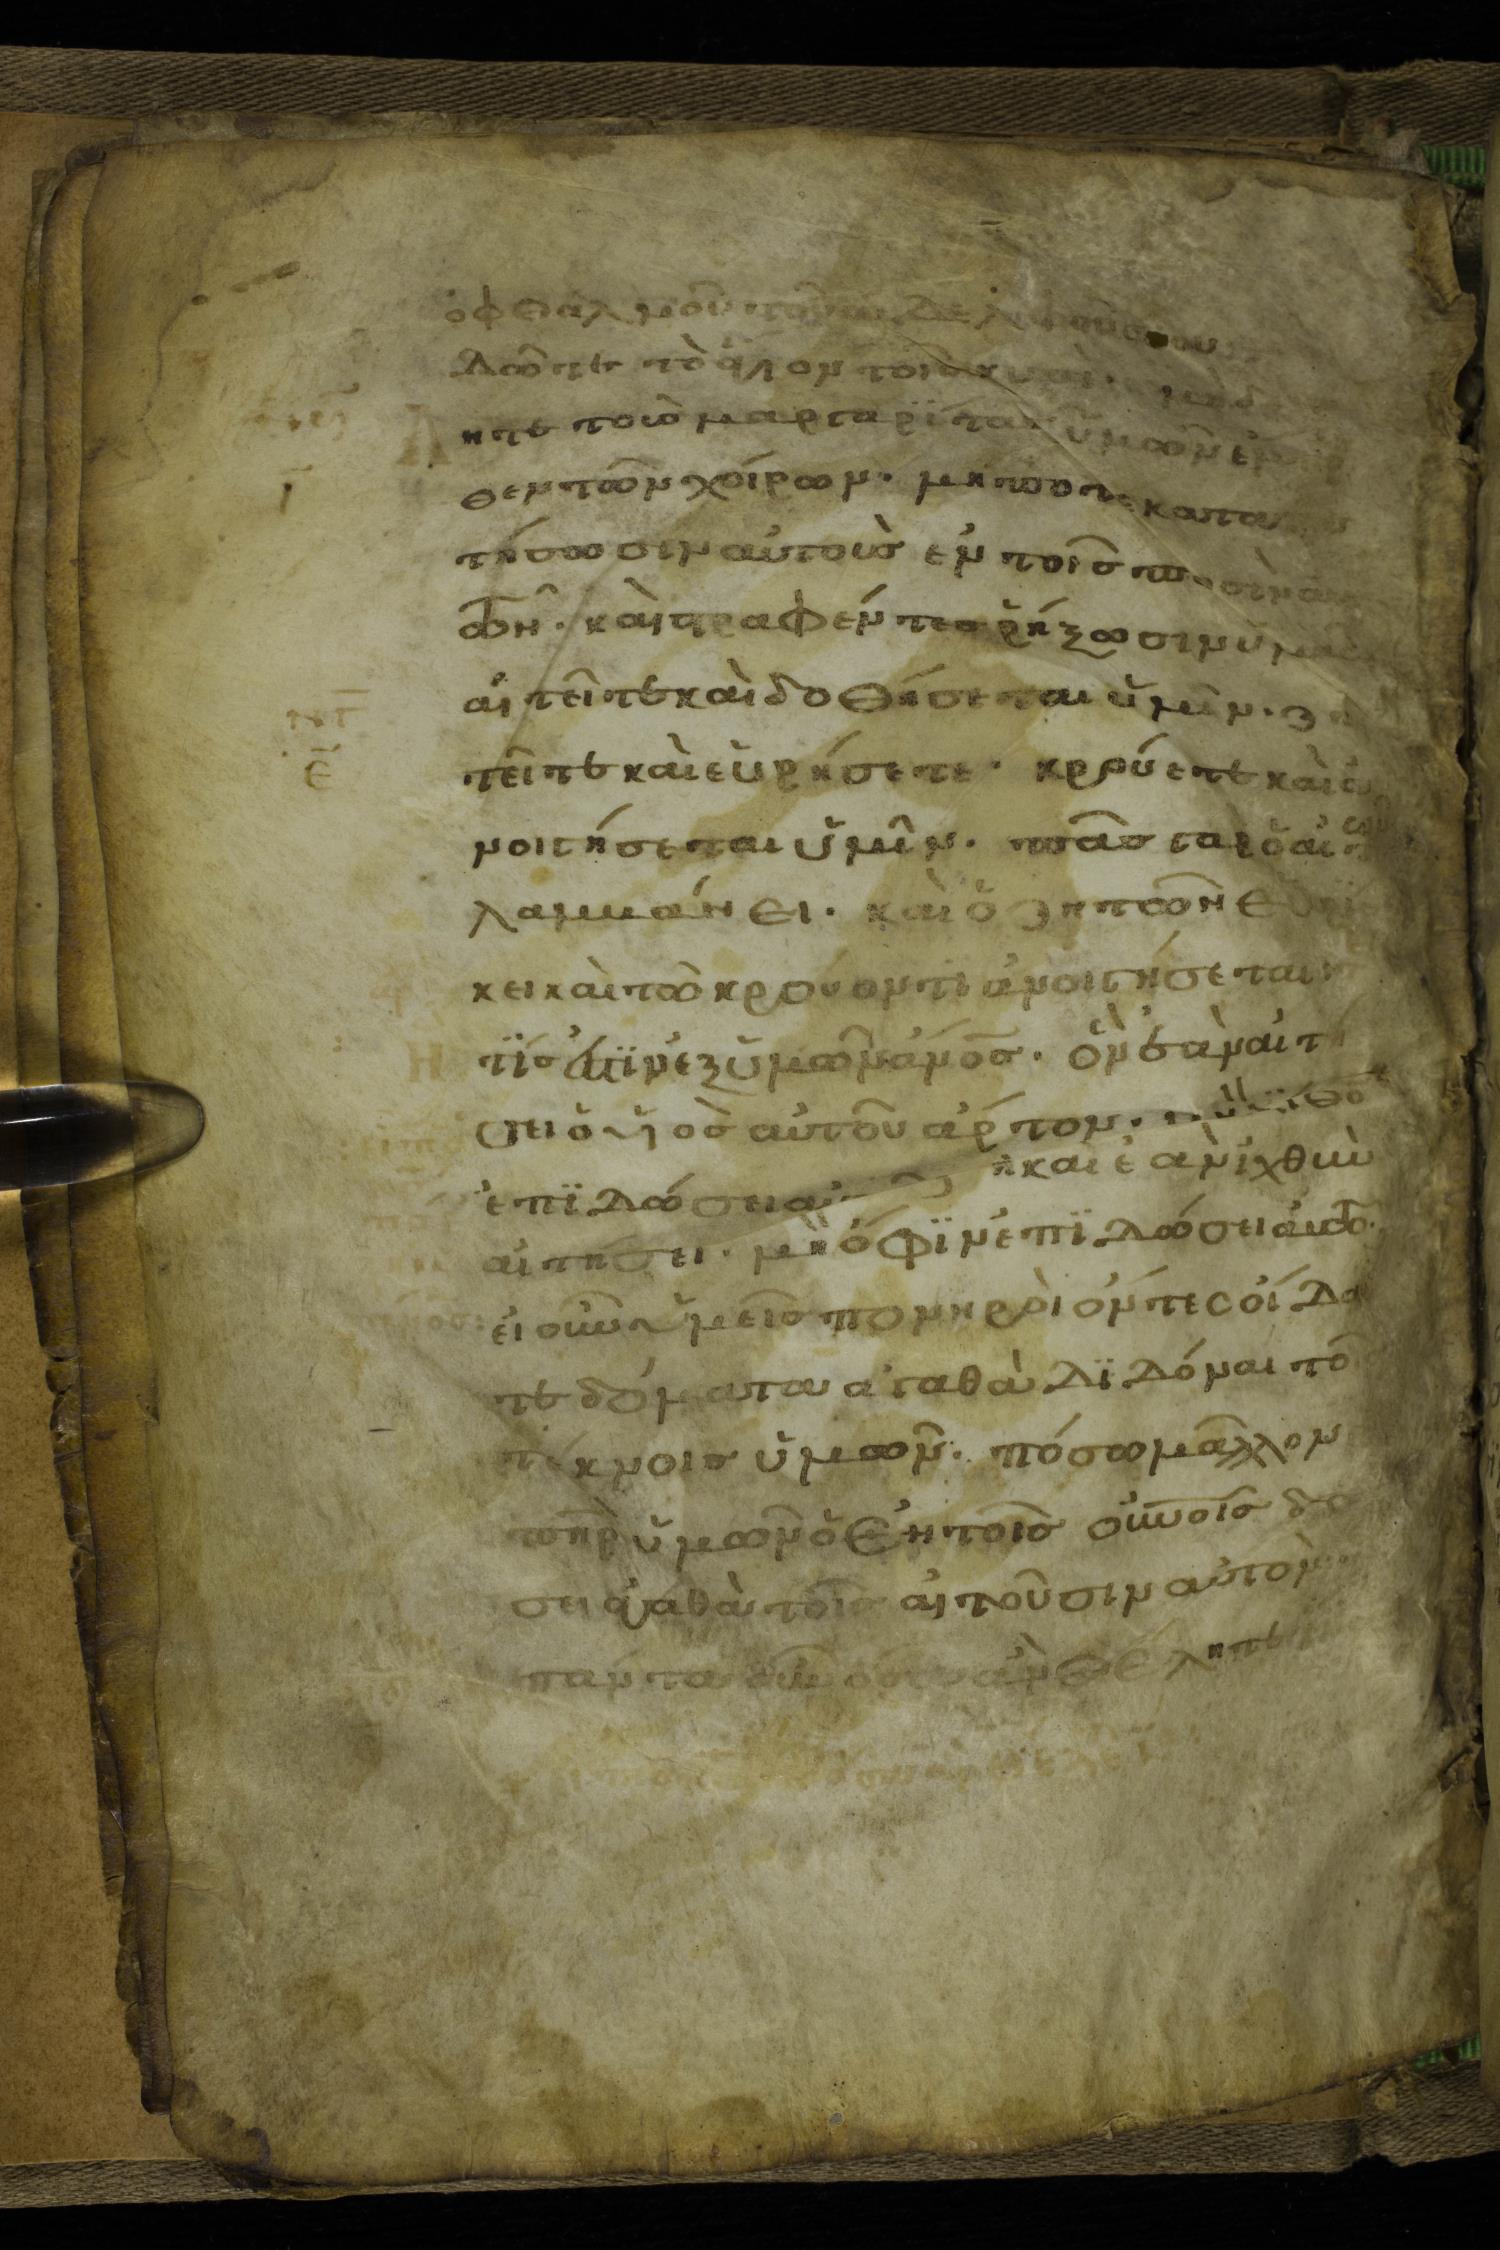 ὀφθαλμοῦ τοῦ ἀδελφοῦ σου
δῶτε τὸ ἅγιον τοῖς κυσὶ. μηδὲ
ητε τοὺς μαργαρΐτας ὑμῶν ἔμπροσ
θεν τῶν χοίρων. μήποτε καταπα
τήσωσιν αὐτοὺς ἐν τοῖς ποσὶν αὐ
τῶν. καὶ στραφέντες ῥήξωσιν ὑμᾶς
αἰτεῖτε καὶ δοθήσεται ὑμῖν. ζη
τεῖτε καὶ εὑρήσετε. κρούετε καὶ ἀ
νοιγήσεται ὑμῖν. πᾶς γὰρ ὁ αἰτῶν
λαμμάνει. καὶ ὁ ζητῶν εὑρί
κει καὶ τῶ κρούοντι ἀνοιγήσεται
τΐς ἐστΐν ἐξ ὑμῶν ἄνος. ὃν ἐὰν αἰτή
σει ὁ υἱὸς αὐτοῦ ἄρτον. μὴ λίθον
ἐπϊδώσει αὐτῶ ἢ καὶ ἐὰν ἰχθὺν
αἰτήσει. μὴ ὄφϊν ἐπϊδώσει αὐτῶ.
εἰ οὖν ὑμεῖς πονηροὶ ὄντες οἴδα
τε δόματα ἀγαθὰ δϊδόναι τοῖς
τέκνοις ὑμῶν. πόσω μᾶλλον
ὁ πηρ ὑμῶν ὁ ἐν τοῖς οὐνοῖς δώ
σει ἀγαθὰ τοῖς αἰτοῦσιν αὐτόν.
πάντα οὖν ὅσα ἂν θέλητε